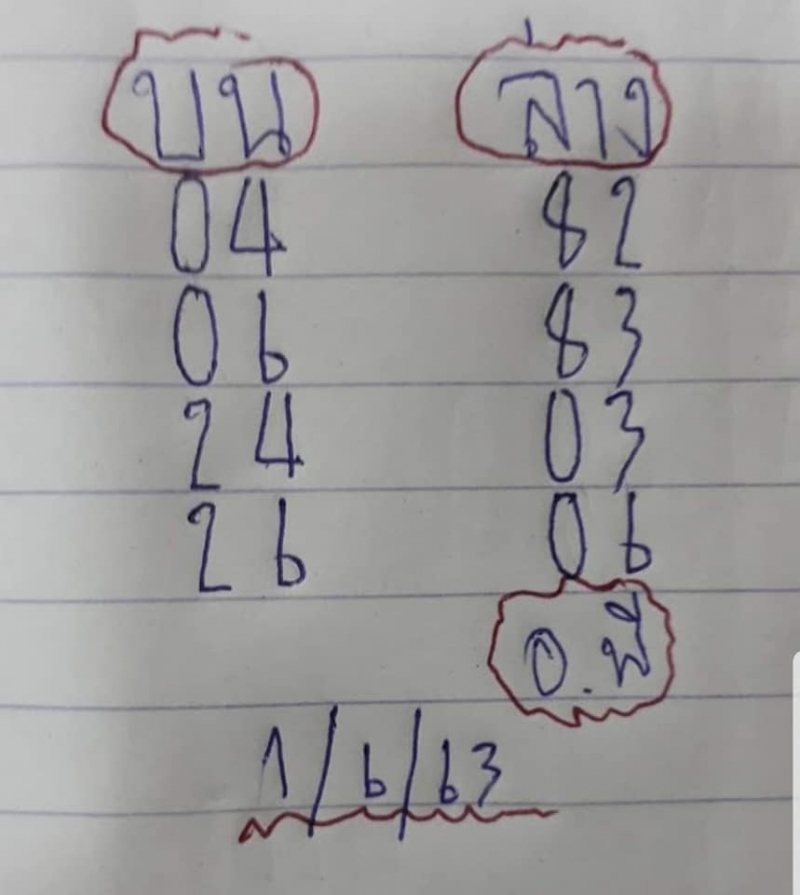 บน ล่าง
04 82
06 83
24 03
26 06
อ.พี
1/6/63